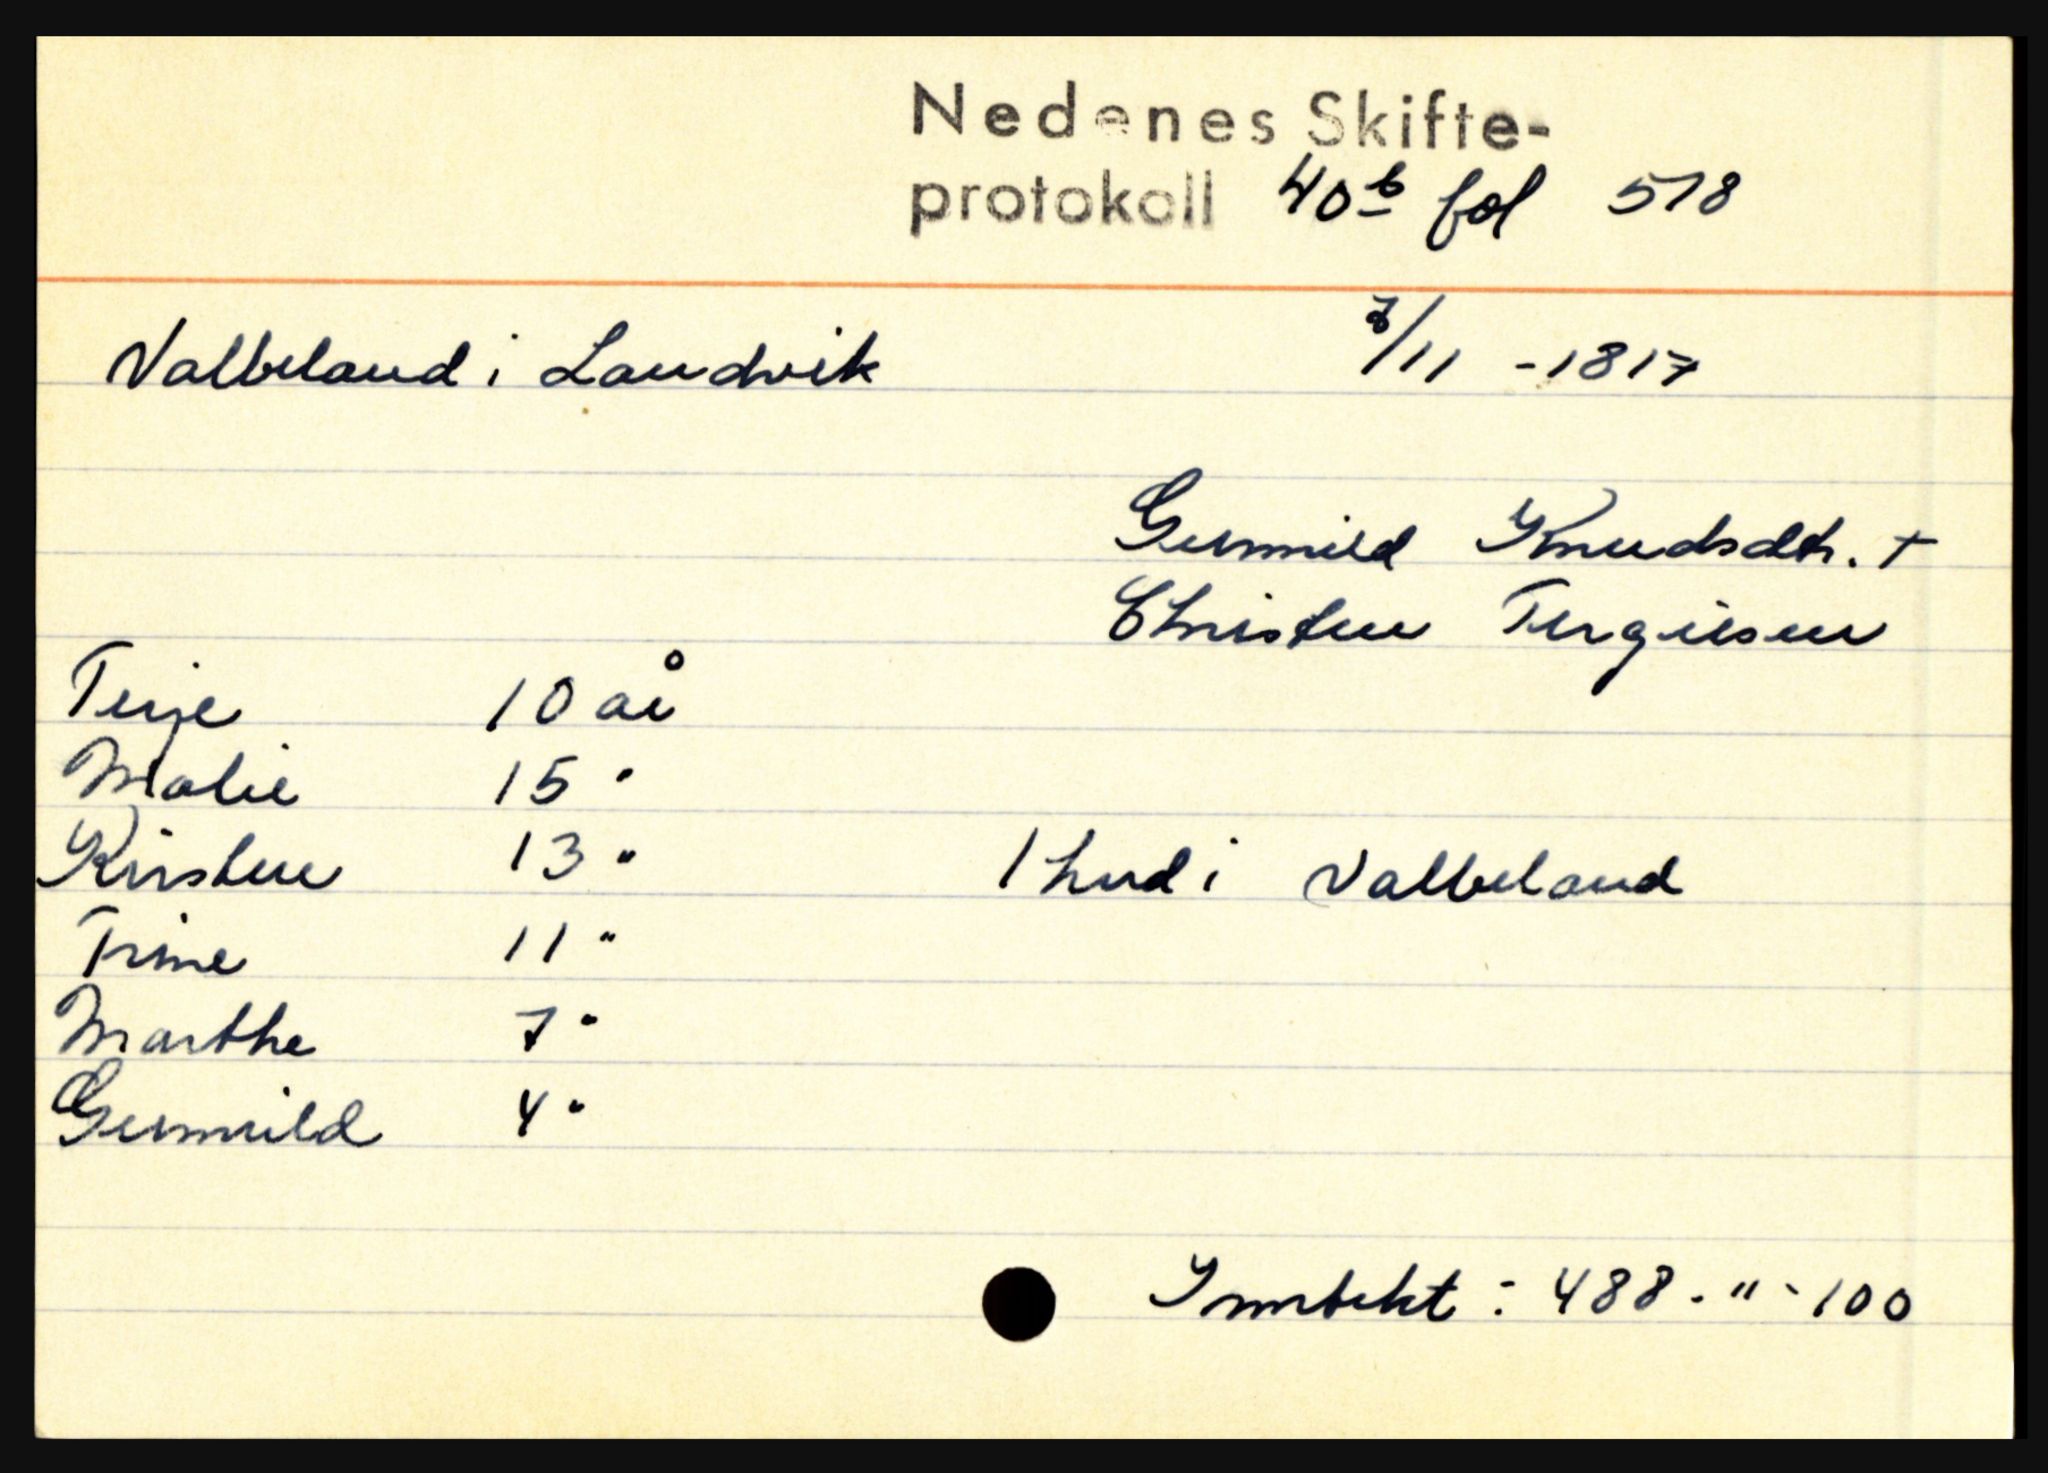 Nedenes Skifte-
protokoll 40b fol 578
Valbeland i Landvik /11 - 1817
Gunnild Knudsdtr. +
Christen Tergiesen
Terje 10 år
Malie 15 "
Kirsten 13 " 1 hud i Valbeland
Trine 11 "
Marthe 7 "
Gunnild 4 "
Inntekt : 488 - " - 100